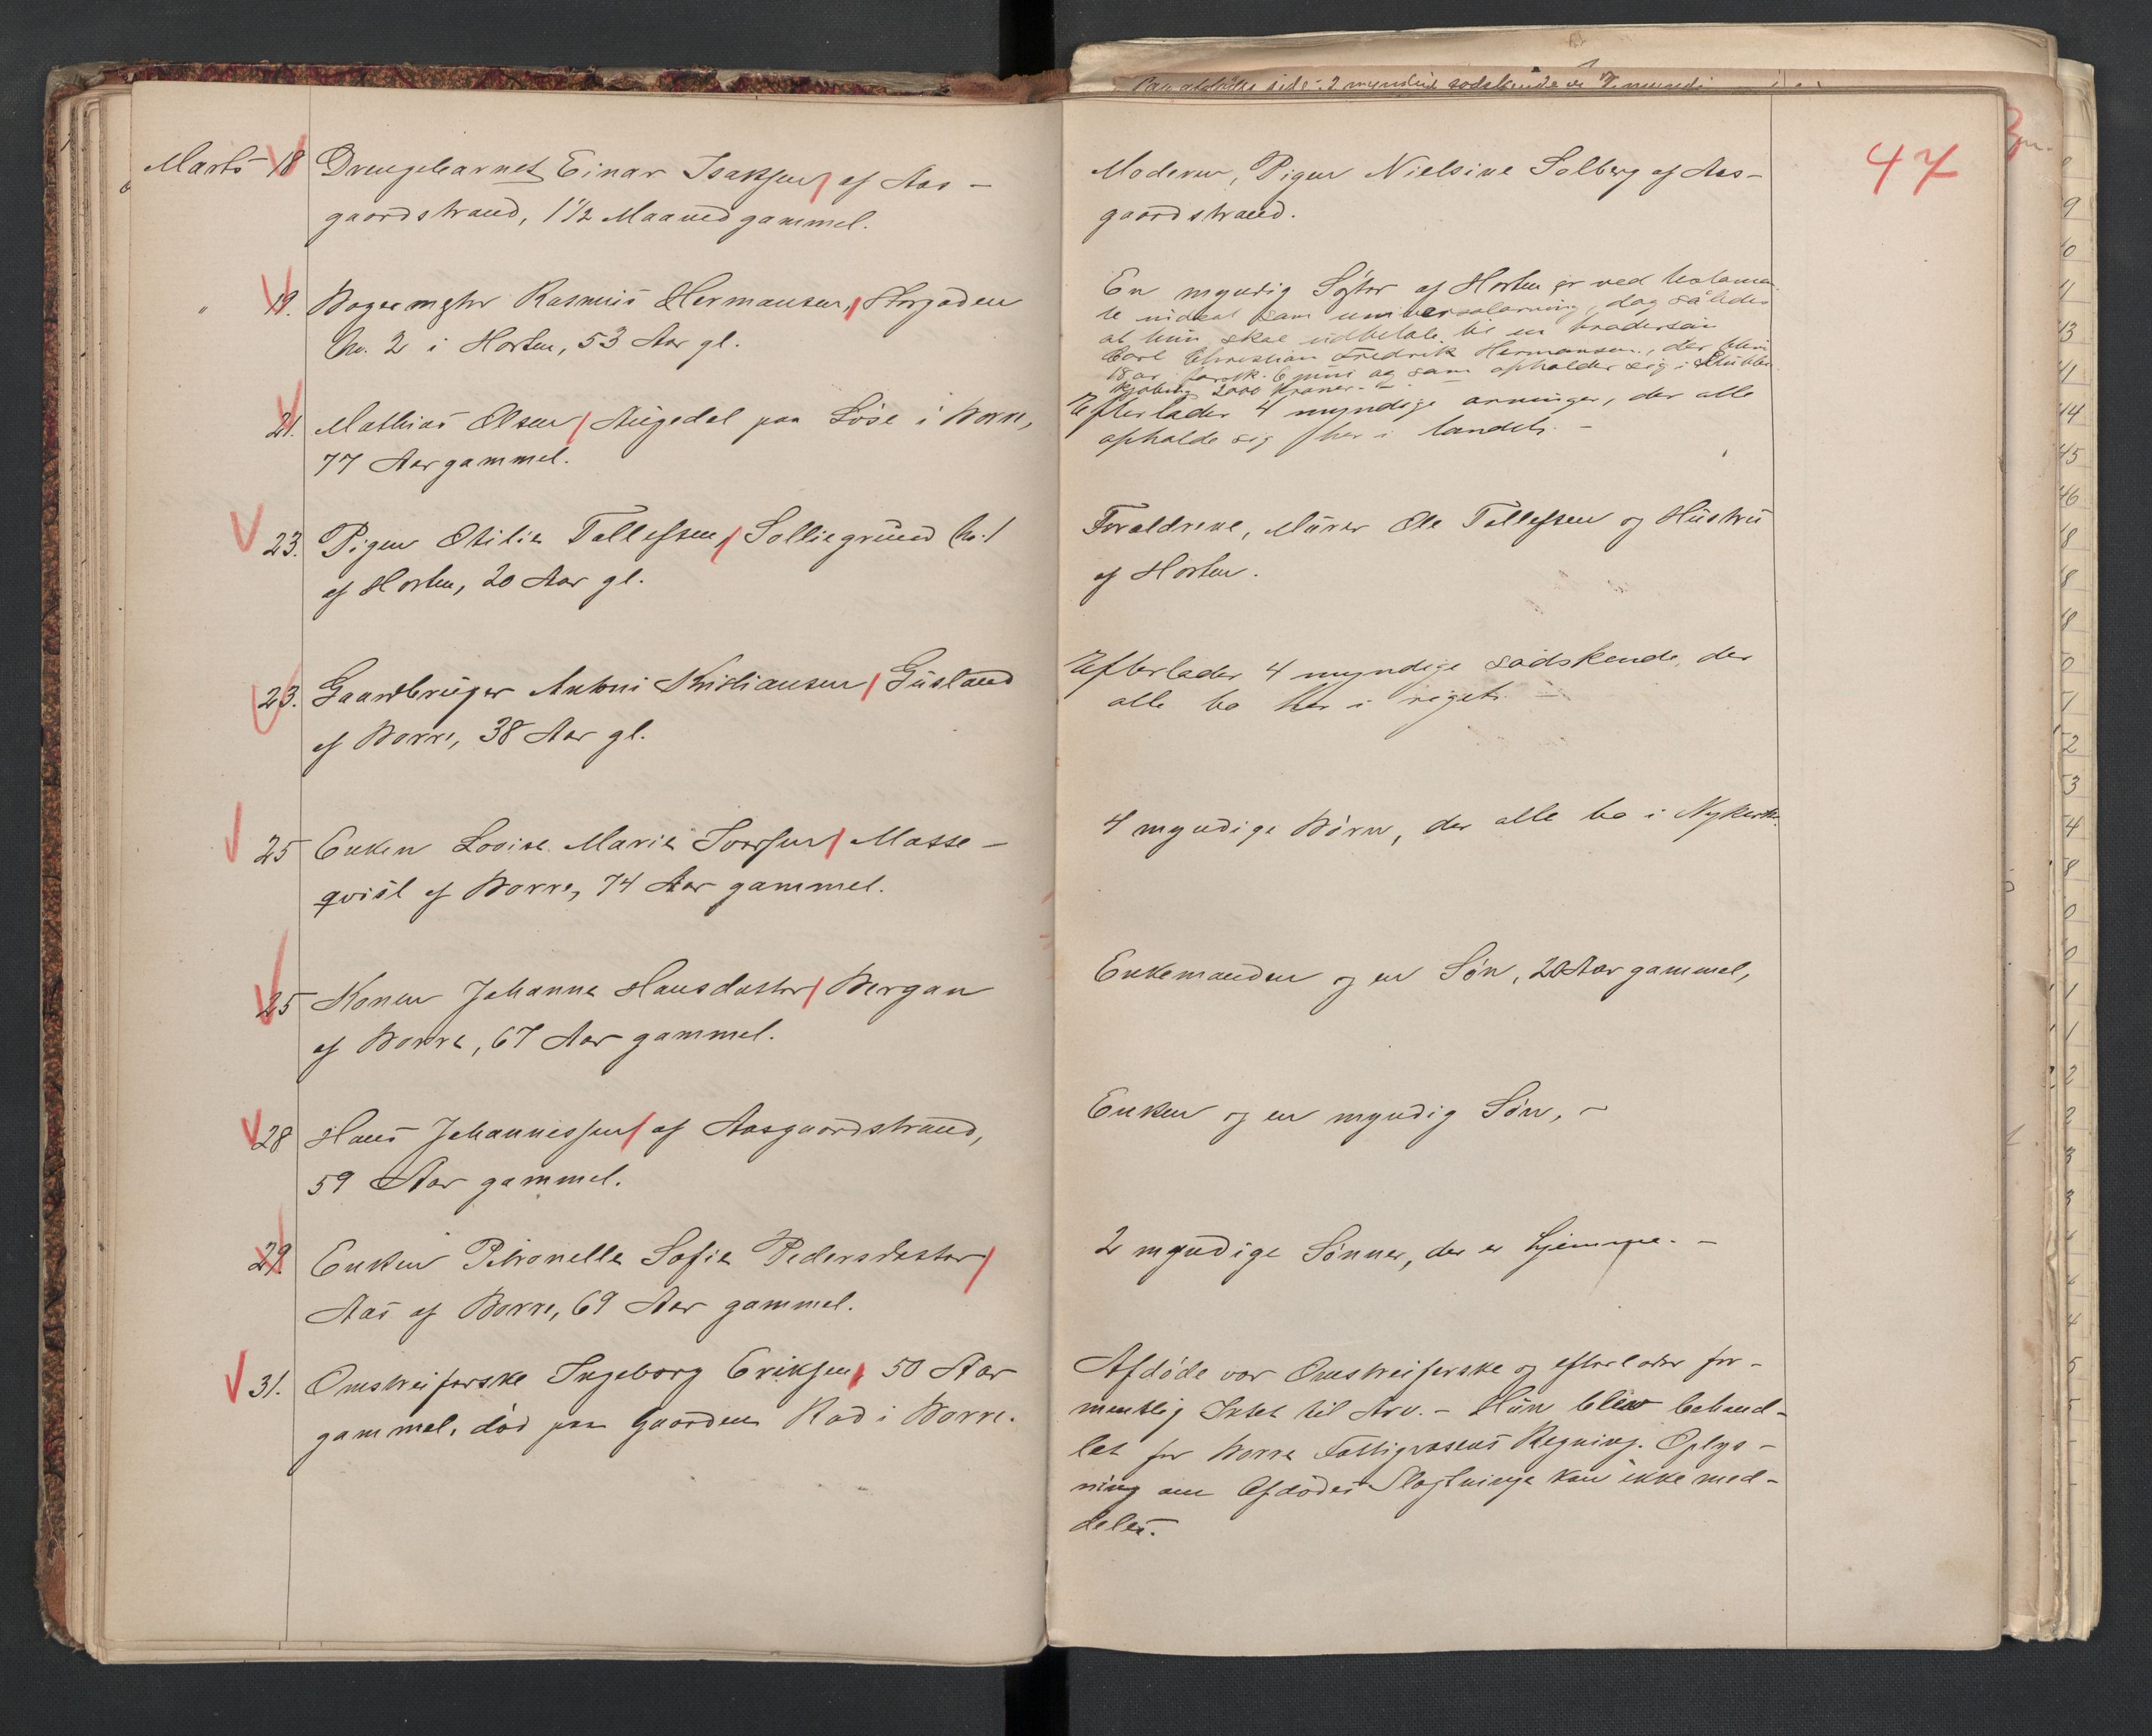 Marts 18 Drengebarnet Einar Isaksen af Aas-
gaardstrand, 1 1/2 Maaned gammel.
" 19. Bagermester Rasmus Hermansen, Storgaden
No. 2 i Horten, 53 Aar gl.
21. Mathias Olsen Augedal paa Løse i Borre,
77 Aar gammel.
23. Pigen Otilie Tollefsen, Solliegrund No. 1
af Horten, 20 Aar gl.
23. Gaardbruger Antoni Kristiansen Gustand
af Borre, 38 Aar gl.
25 Enken Lovise Marie Iversen Masse-
qvist af Borre, 74 Aar gammel.
25 Konen Johanne Hansdatter Bergan
af Borre, 67 Aar gammel.
28 Hans Johannissen af Aasgaardstrand,
59 Aar gammel.
29. Enken Petronelle Sofie Pedersdatter
Aas af Borre, 69 Aar gammel.
31. Omstreiferske Ingeborg Eriksen, 50 Aar
gammel, død paa Gaarden Rød i Borre.
47
Moderen, Pigen Nielsine Solberg af Aas-
gaardstrand.
En myndig Søster af Horten er ved testamen-
te indsat som universalarving, dog således
at hun skal udbetale til en brodersøn
Carl Christian Fredrik Hermansen, der blev
18 år 6 juni og som opholder sig i
kjøbing 2000 Kroner.
Efterlader 4 myndige arvinger, der alle
opholde sig her i landet. -
Forældrene, Murer Ole Tollefsen og Hustru
af Horten.
Efterlader 4 myndige sødskende, der
alle bo her i riget. -
4 myndige Børn, der alle bo i Nykirke.
Enkemanden og en Søn, 20 Aar gammel,
Enken og en myndig Søn, -
2 myndige Sønner, der er hjemme. -
Afdøde var Omstreiferske og efterlader for-
mentlig Intet til Arv. - Hun blev behand-
let for Borre Fattigvæsens Regning. Oplys-
ning om Afdødes Slægtninge kan ikke med-
deles.